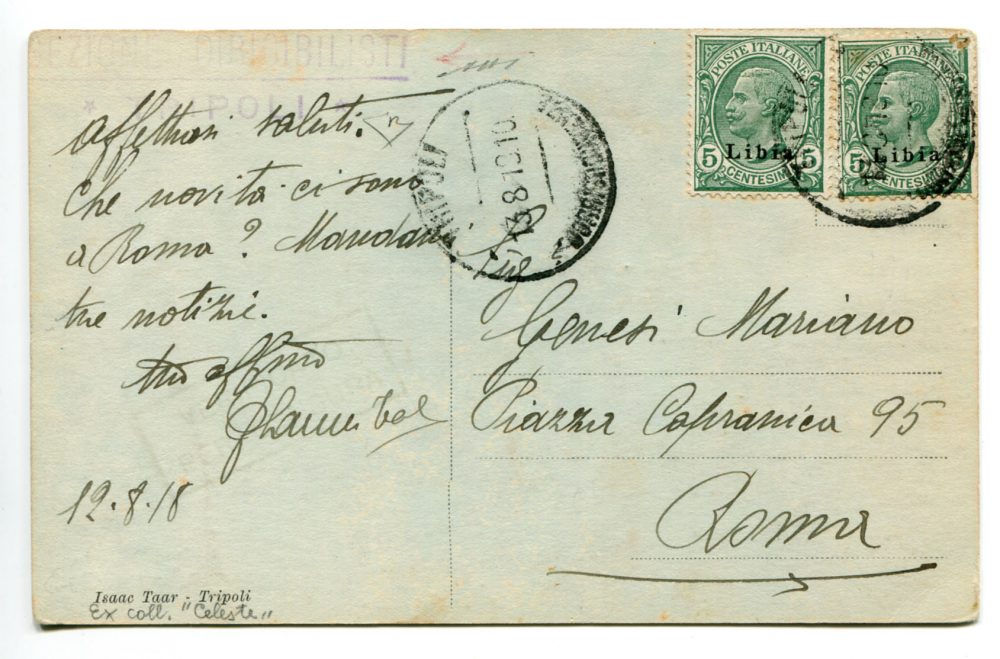 SEZIONE DIRIGIBILISTI
* TRIPOLI *
Affettuosi saluti.
Che novità ci sono
a Roma? Mandami
tue notizie.
tuo affmo
12.8.18
Isaac Taar - Tripoli
Ex coll. "Celeste"
TRIPOLI
12.8.18
POSTE ITALIANE
5 5
CENTESIMI
Libia
POSTE ITALIANE
5 5
CENTESIMI
Libia
Sig
Genesi Mariano
Piazza Capranica 95
Roma